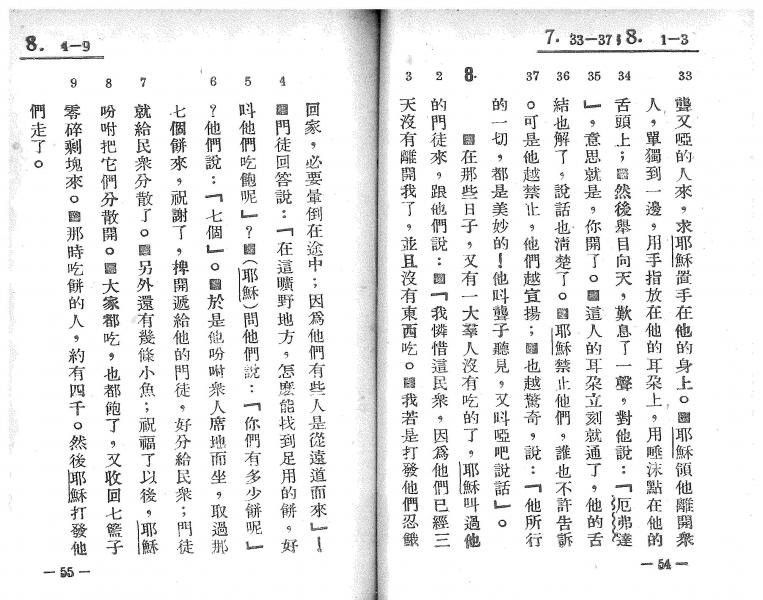 7. 33—37；8. 1—3
33 聾又啞的人來，求耶穌置手在他的身上。耶穌領他離開衆
人，單獨到一邊，用手指放在他的耳朶上，用唾沫點在他的
34 舌頭上；然後舉目向天，歎息了一聲，對他說：「厄弗達
35 」，意思就是，你開了。這人的耳朶立刻就通了，他的舌
36 結也解了，說話也清楚了。耶穌禁止他們，誰也不許告訴
37 。可是他越禁止，他們越宣揚；也越驚奇，說：「他所行
的一切，都是美妙的！他叫聾子聽見，又叫啞吧說話」。
8. 在那些日子，又有一大羣人沒有吃的了，耶穌叫過他
2 的門徒來，跟他們說：「我憐惜這民衆，因爲他們已經三
3 天沒有離開我了，並且沒有東西吃。我若是打發他們忍餓
— 54 —
8. 4—9
回家，必要暈倒在途中；因爲他們有些人是從遠道而來」！
4 門徒回答說：「在這曠野地方，怎麽能找到足用的餅，好
5 叫他們吃飽呢」？（耶穌）問他們說：「你們有多少餅呢」
6 ？他們說：「七個」。於是他吩咐衆人席地而坐，取過那
七個餅來，祝謝了，捭開遞給他的門徒，好分給民衆；門徒
7 就給民衆分散了。另外還有幾條小魚；祝福了以後，耶穌
8 吩咐把它們分散開。大家都吃，也都飽了，又收回七籃子
9 零碎剩塊來。那時吃餅的人，約有四千。然後耶穌打發他
們走了。
— 55 —